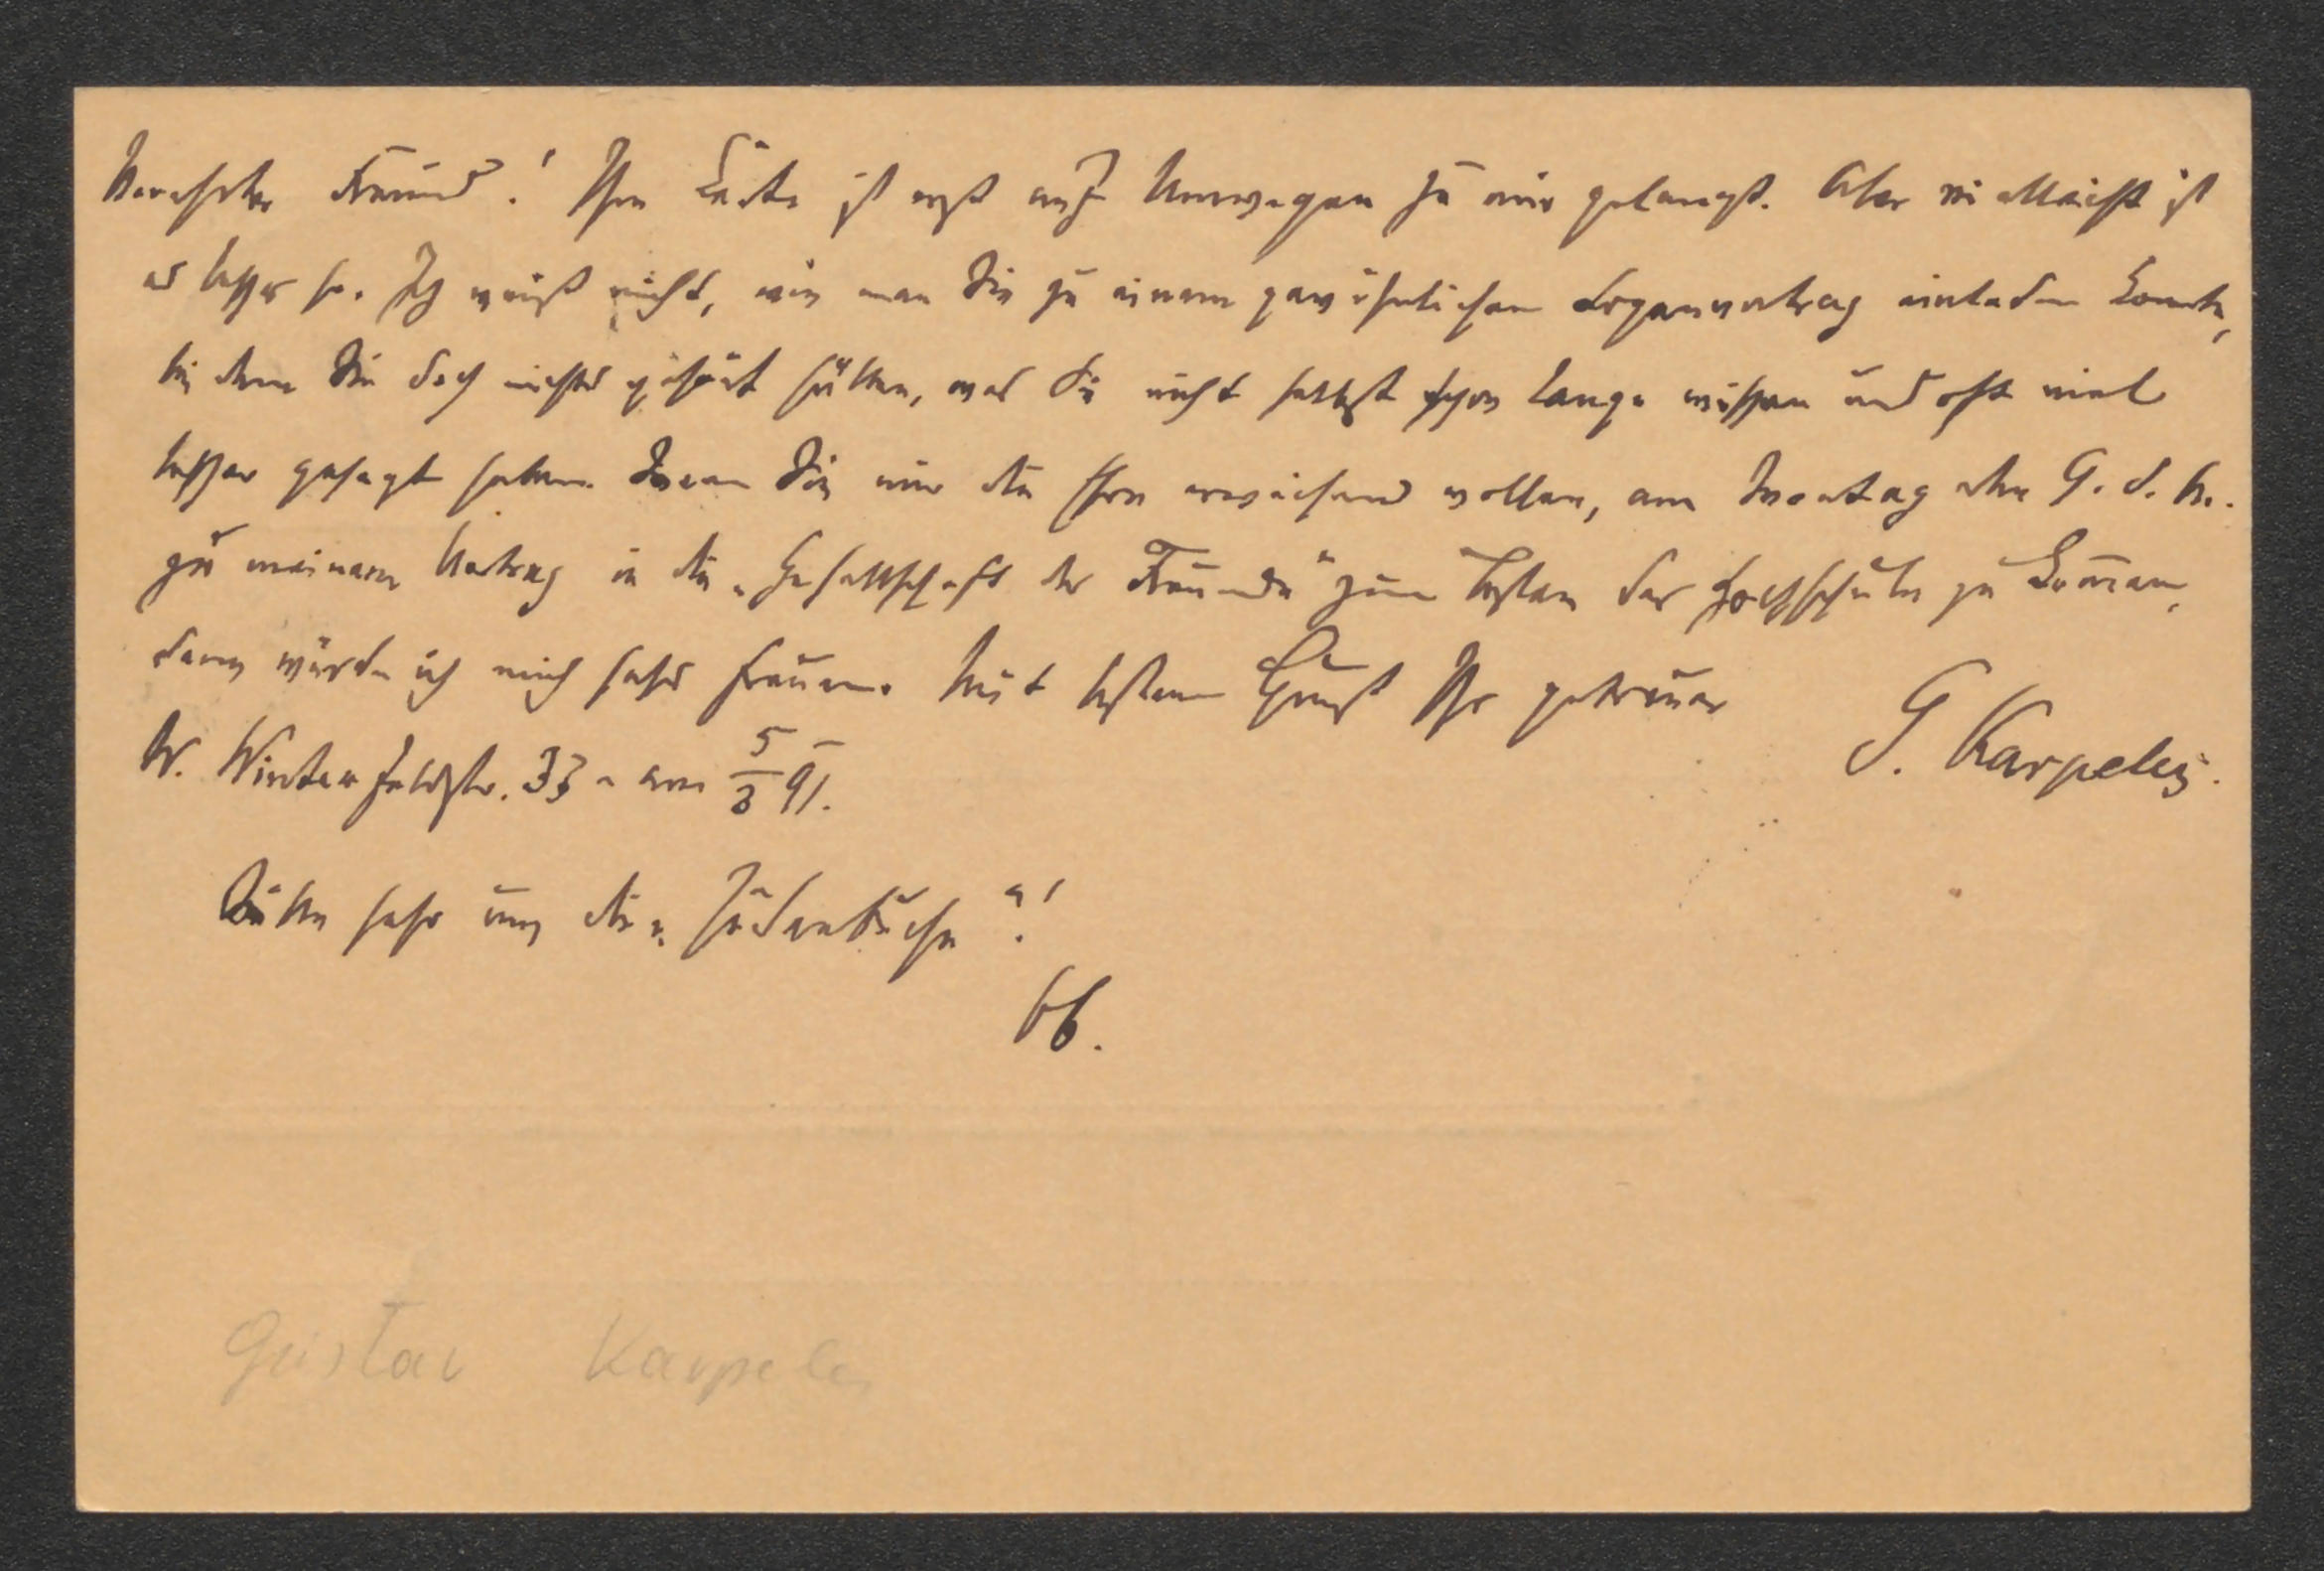 Verehrter Freund! Ihre Karte ist erst auf Umwegen zu mir gelangt. Aber vielleicht ist
es besser so. Ich weiß nicht, wie man Sie zu einem gewöhnlichen Logenvortrag einladen konnte,
bei dem Sie doch nichts gehört hätten, was Sie nicht selbst schon lange wissen und oft viel
besser gesagt haben. Wenn Sie mir die Ehre erweisen wollen, am Montag den 9. d. M.
zu meinem Vortrag in die „Gesellschaft der Freunde" zum Besten der Hochschule zu kom̅en,
dann würde ich mich sehr freuen. Mit bestem Gruß Ihr getreuer
G. Karpeles.
W. Winterfeldstr. 33 - am 5/3 91.
Bitte sehr um die „Judenbuche"!
Gustav Karpeles